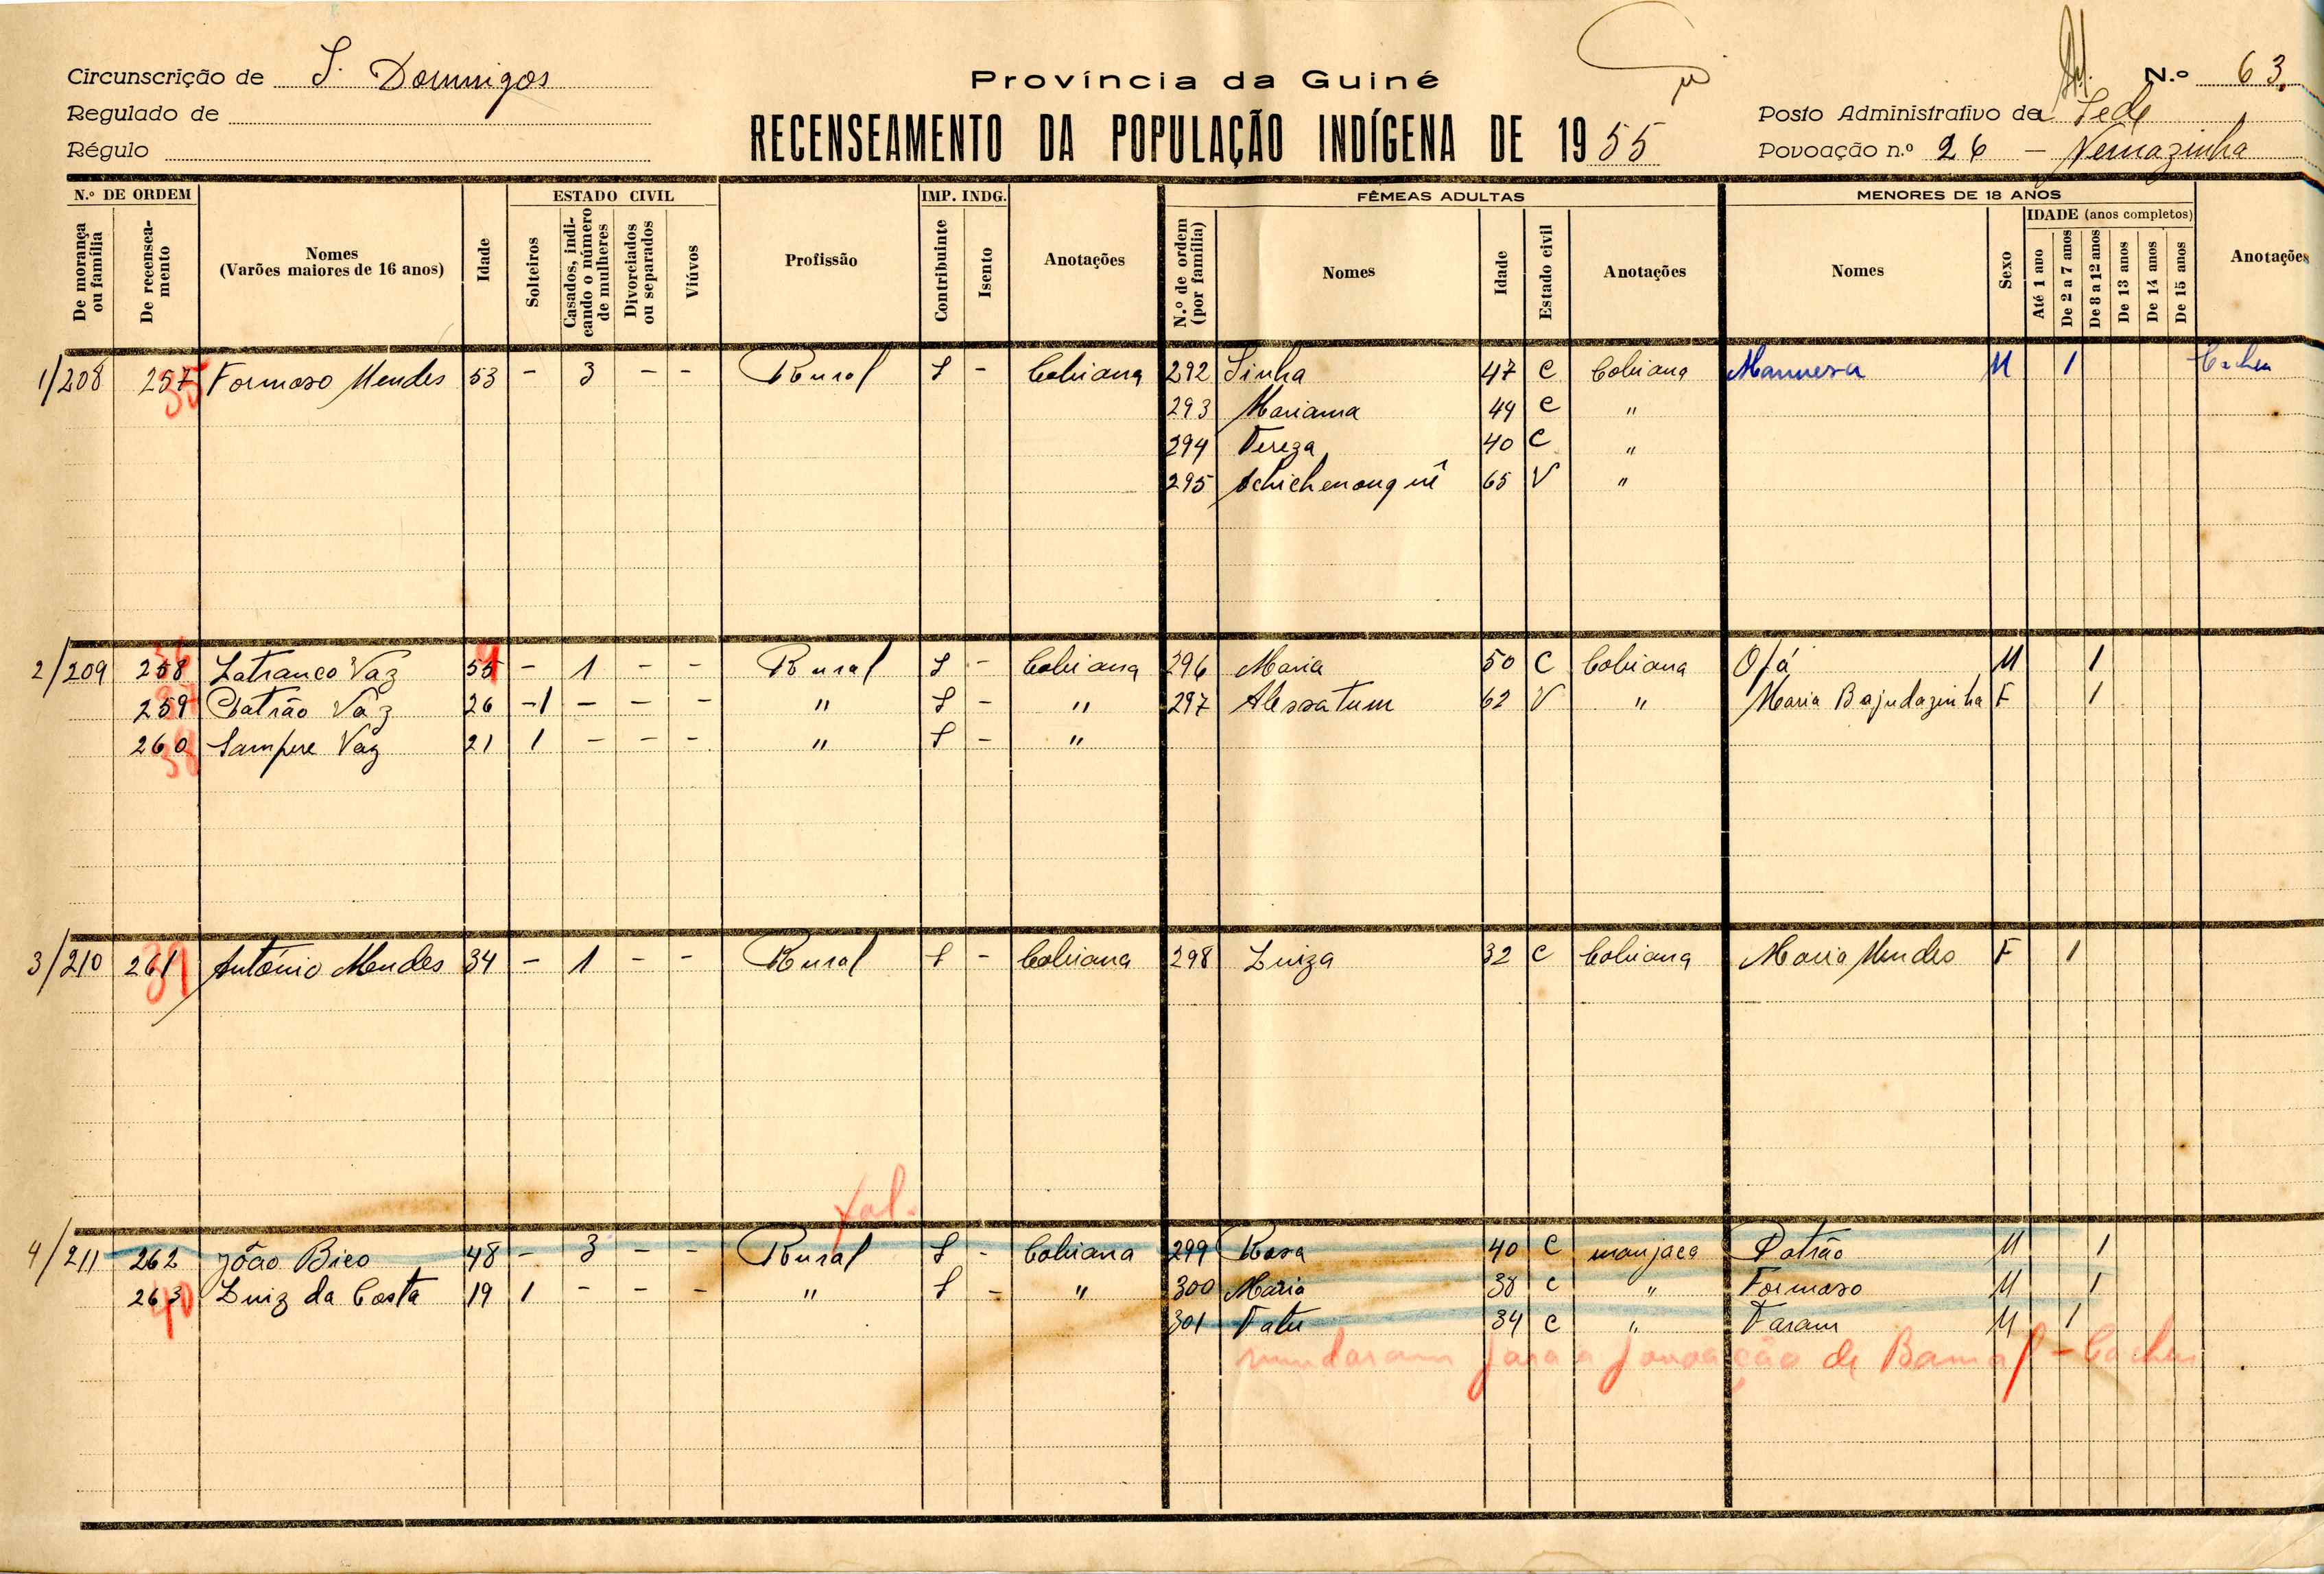 Circunscrição de S. Domingos
Regulado de
Régulo
Província da Guiné
RECENSEAMENTO DA POPULAÇÃO INDÍGENA DE 1955
N.º 63
Posto Administrativo da Sede
Povoação n.º 26 - Nemazinha
N.º DE ORDEM
De morança ou família
De recenseamento
Nomes
(Varões maiores de 16 anos)
Idade
ESTADO CIVIL
Solteiros
Casados, indicando o número de mulheres
Divorciados ou separados
Viúvos
Profissão
IMP. INDG.
Contribuinte
Isento
Anotações
FÊMEAS ADULTAS
N.º de ordem (por família)
Nomes
Idade
Estado civil
Anotações
MENORES DE 18 ANOS
Nomes
Sexo
IDADE (anos completos)
Até 1 ano
De 2 a 7 anos
De 8 a 12 anos
De 13 anos
De 14 anos
De 15 anos
Anotações
1/208 257 35 Formoso Mendes 53 - 3 - - Rural S - Cobiana 292 Sinha 47 C Cobiana Mannesa M 1 Cacheu
293 Mariama 49 C "
294 Tereza 40 C "
295 65 V "
2/209 258 36 Latranco Vaz 55 9 - 1 - - Rural S - Cobiana 296 Maria 50 C Cobiana Ofá M 1
259 37 Patrão Vaz 26 - 1 - - - " S - " 297 Alessatum 62 V " Maria Bajudazinha F 1
260 38 Sampere Vaz 21 1 - - - " S - "
3/210 261 39 António Mendes 34 - 1 - - Rural S - Cobiana 298 Luiza 32 C Cobiana Maria Mendes F 1
fal.
4/211 262 João Bico 48 - 3 - - Rural S - Cobiana 299 Rosa 40 C manjaca Patrão M 1
263 40 Luiz da Costa 19 1 - - - " S - " 300 Maria 38 C " Formoso M 1
301 Fatu 34 C " Faram M 1
mudaram para a povoação de - Cacheu